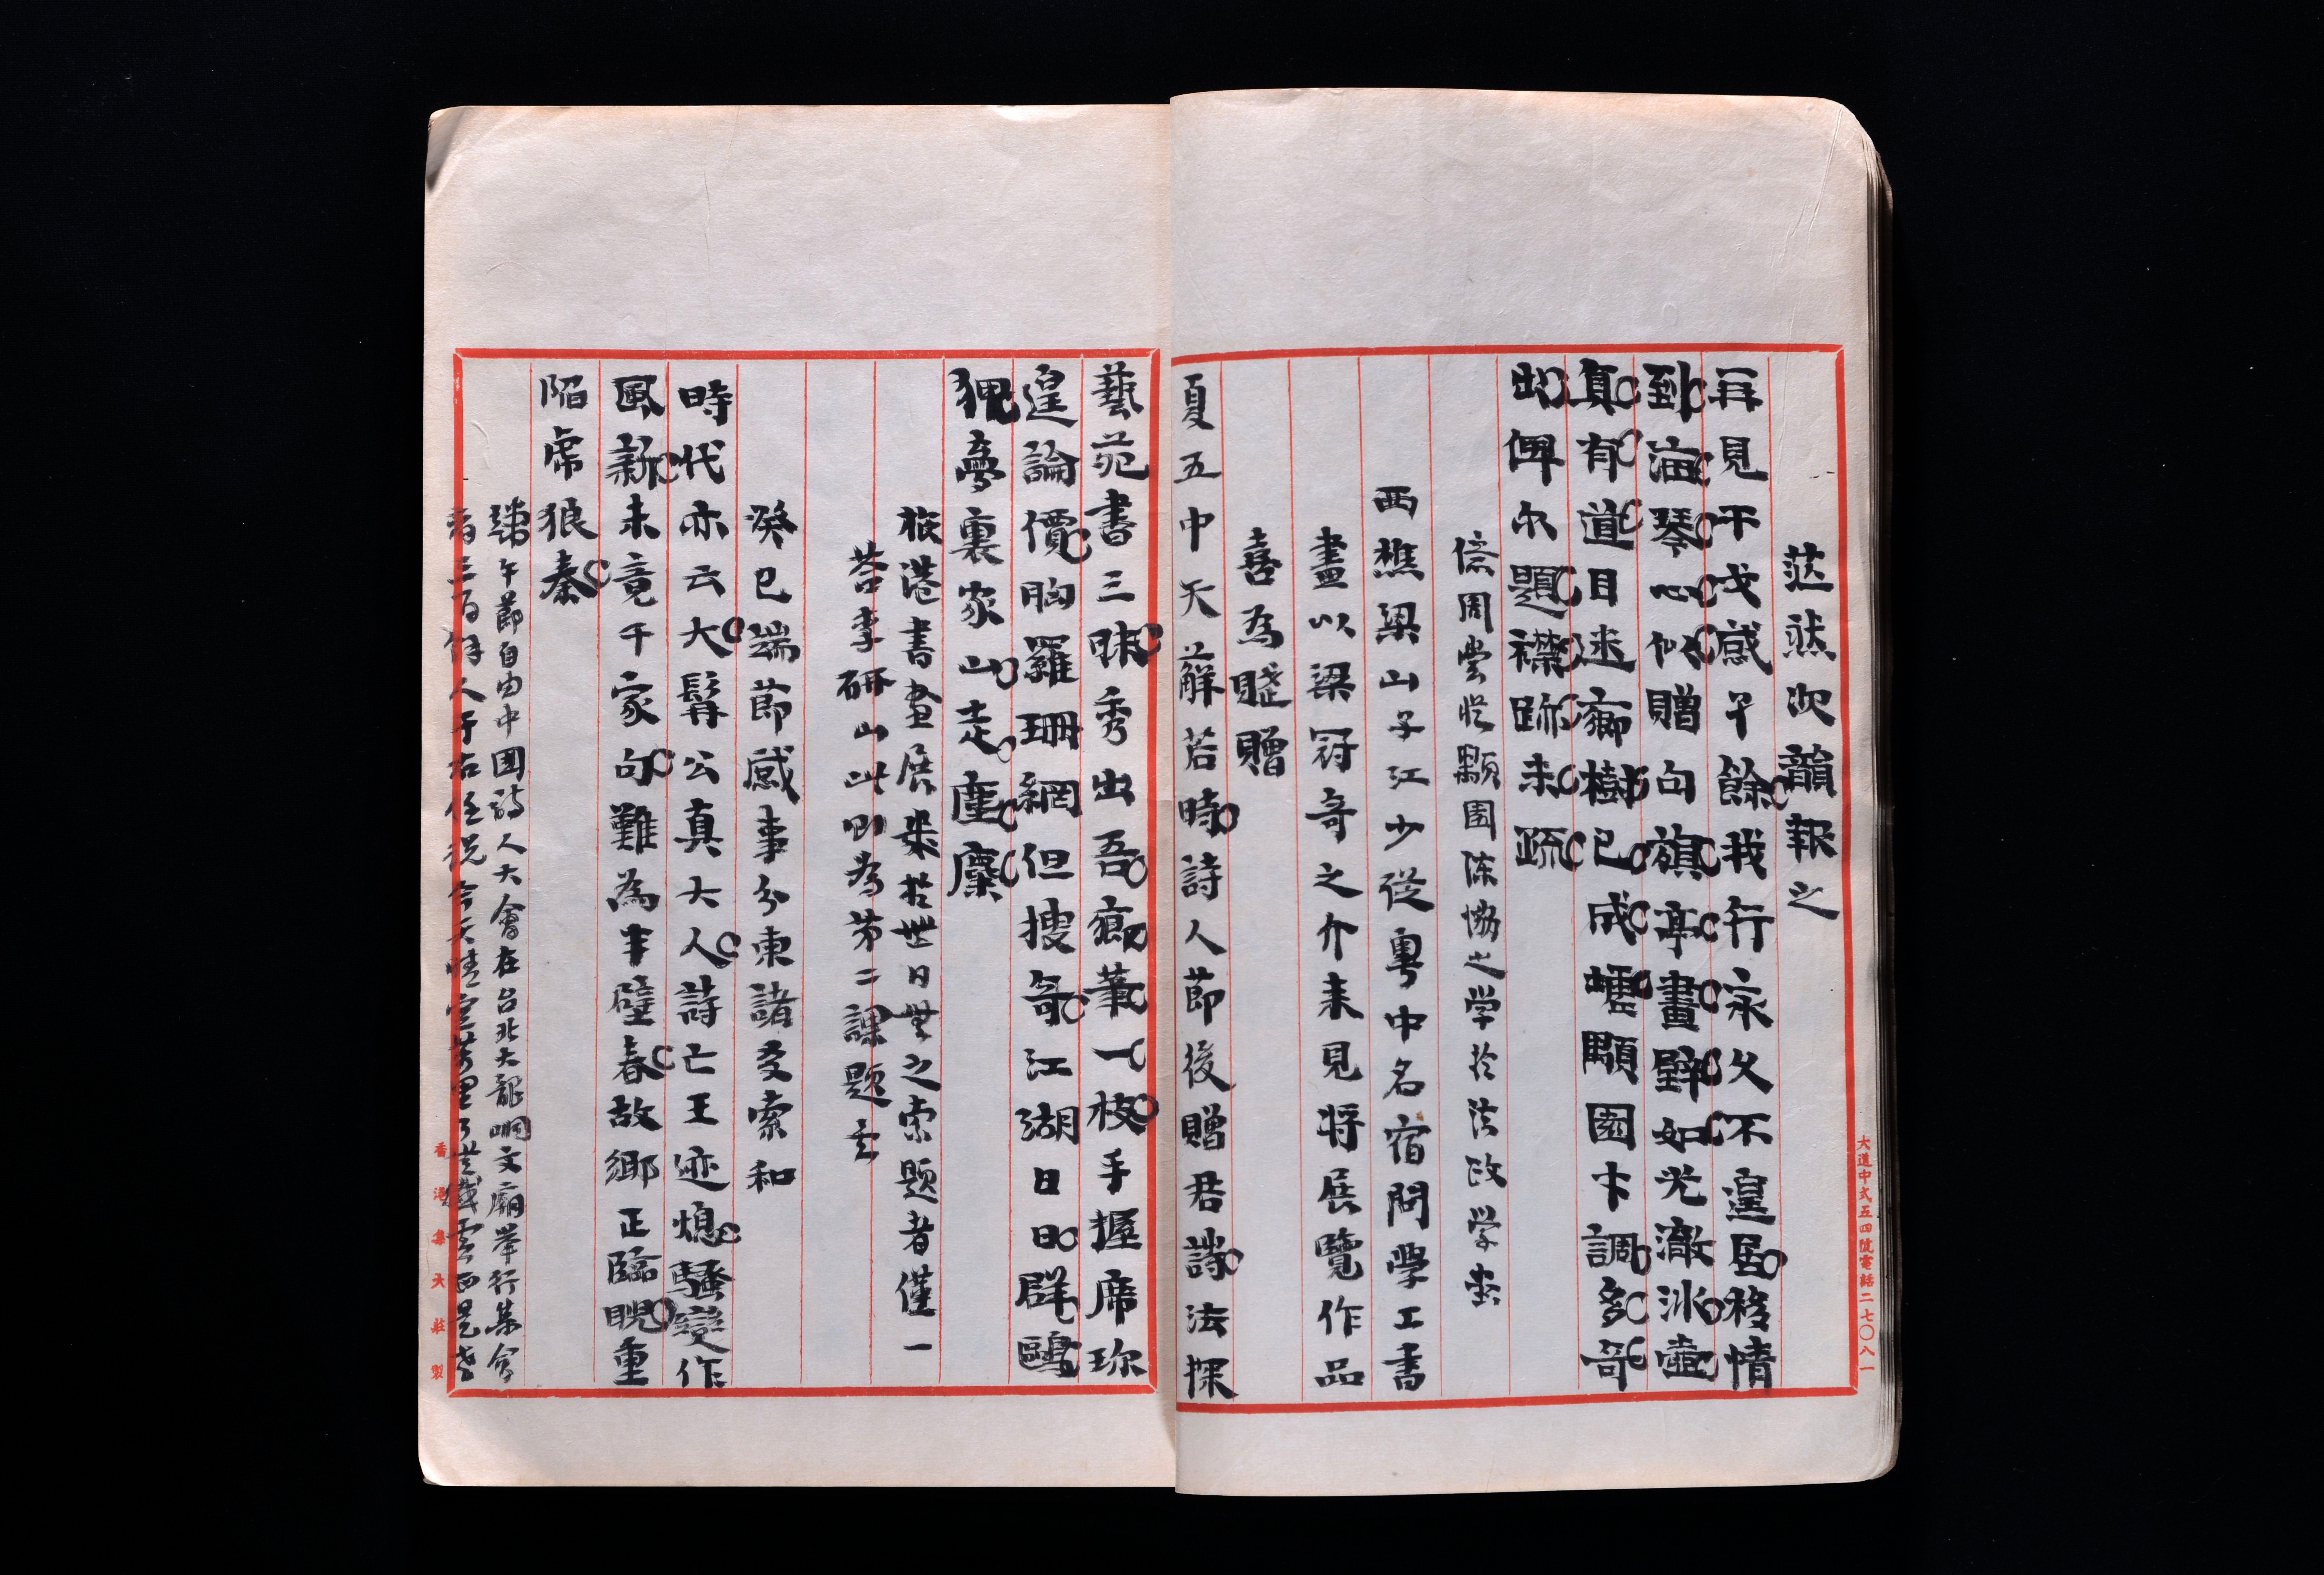 茫然次韻報之
再見干戈感早餘我行永久不遑居移情
到海琴心似贈句旗亭畫壁如光澈冰壺
真有道目迷癤樹已成墟顒園卞調多奇
出俾尔題襟跡未疏
偿周嘗從顒園陈協之学於法政学堂
西樵梁山子江少從粵中名宿問學工書
畫以梁冠奇之介来見将展覽作品
喜為賤贈
夏五中天薢若時詩人節後贈君詩法探
藝苑書三昧秀出吾癤筆一枝手握席珍
遑論價胸羅珊網但搜奇江湖日日群鷗
狎夢裏家山走麈麋
旅港書畫展來於世日無之索題者僅一
苔李研山此即為第二課題云
癸巳端節感事分柬諸友索和
時代亦云大髯公真大人詩亡王迹熄騷變作
風新未竟千家句難為半壁春故鄉正臨睨重
陷虎狼秦
瑞午節自由中國詩人大會在台北大龍峒文廟举行某会
者三百餘人于右任説今天
大道中式五四號電話二七〇八一
香港集大莊製